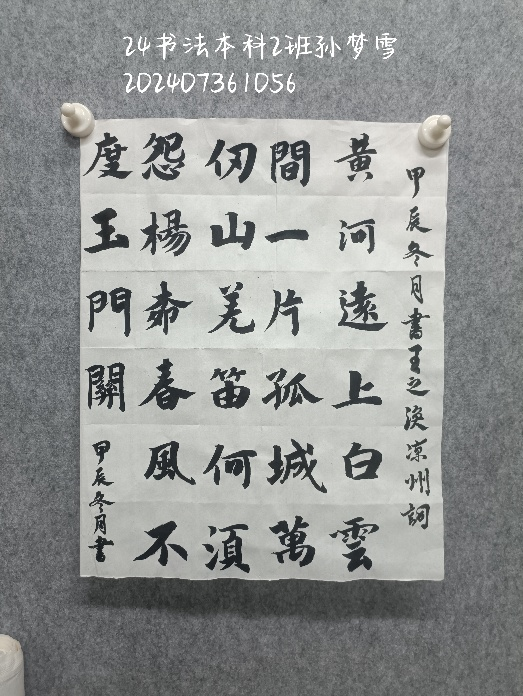 24书法本科2班孙梦雪
202407361056
甲辰冬月書王之涣凉州詞
黄河遠上白雲
間一片孤城萬
仞山羌笛何須
怨楊柳春風不
度玉門關
甲辰冬月書